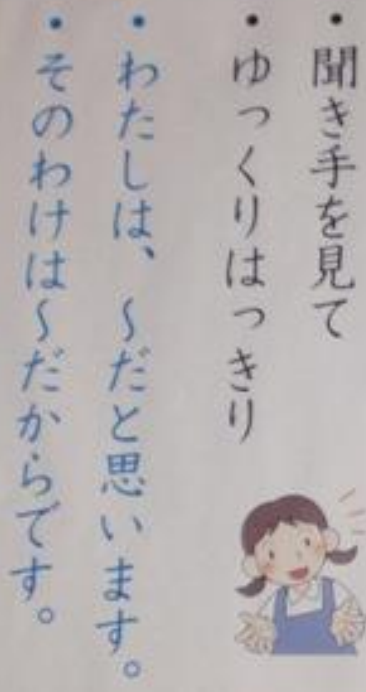 ・聞き手を見て
・ゆっくりはっきり
・わたしは、～だと思います。
・そのわけは～だからです。